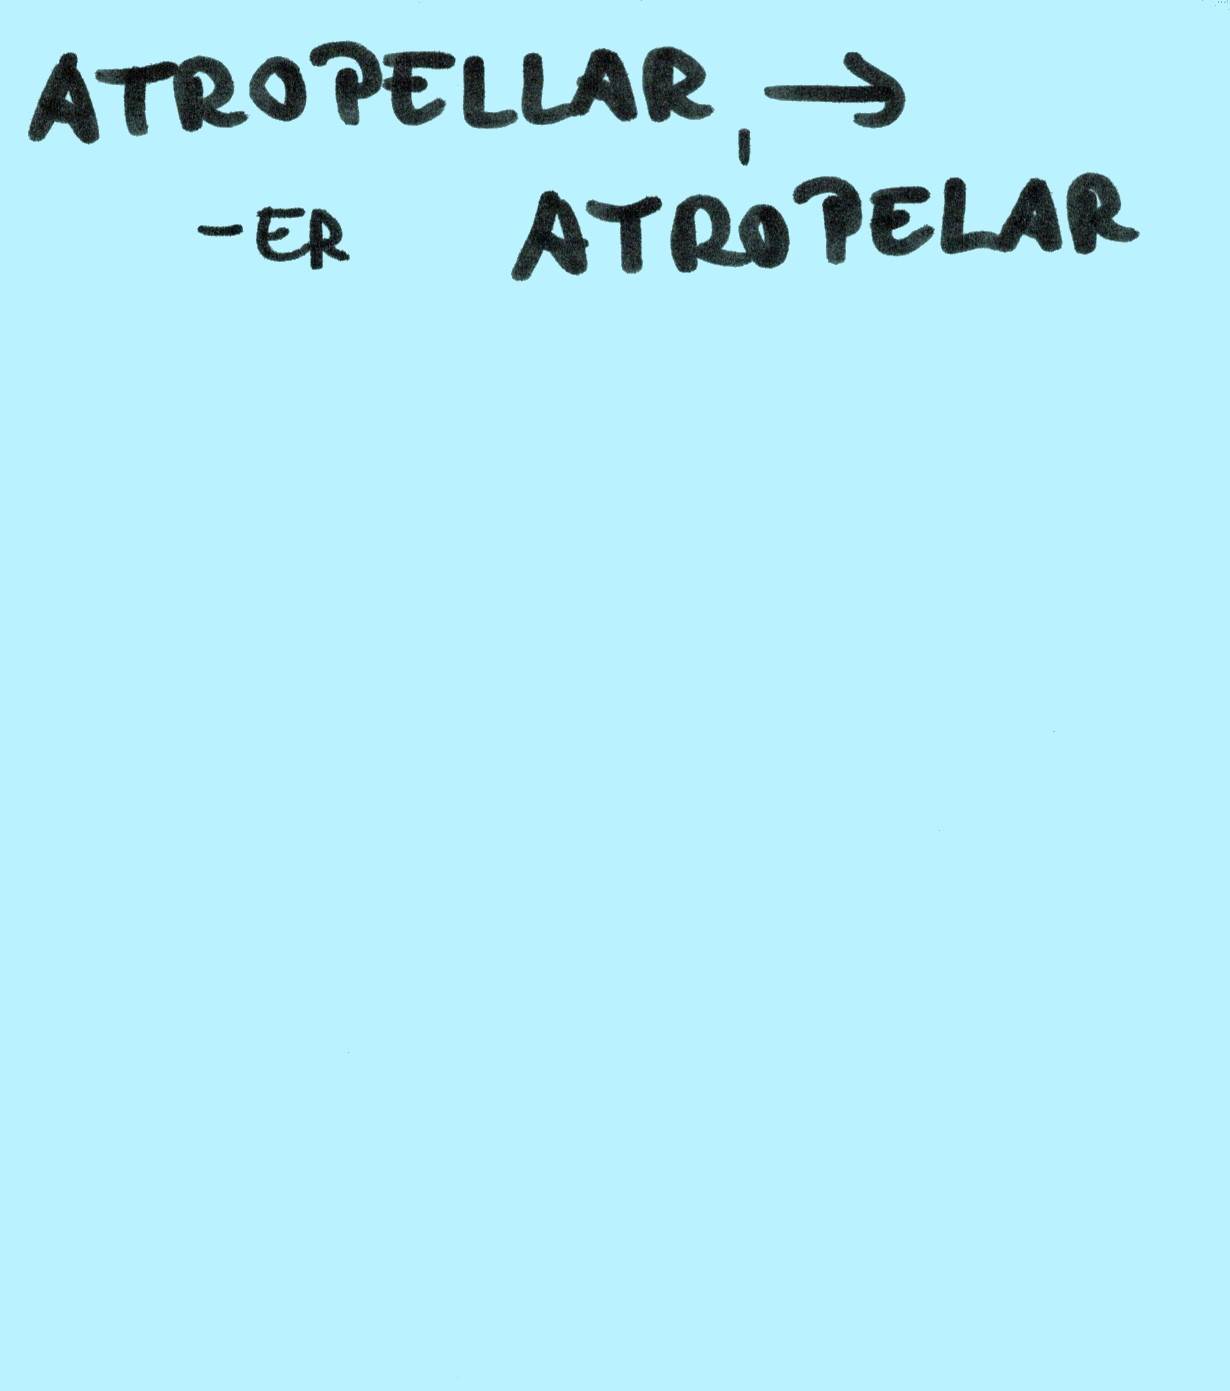 ATROPELLAR, →
-ER ATROPELAR